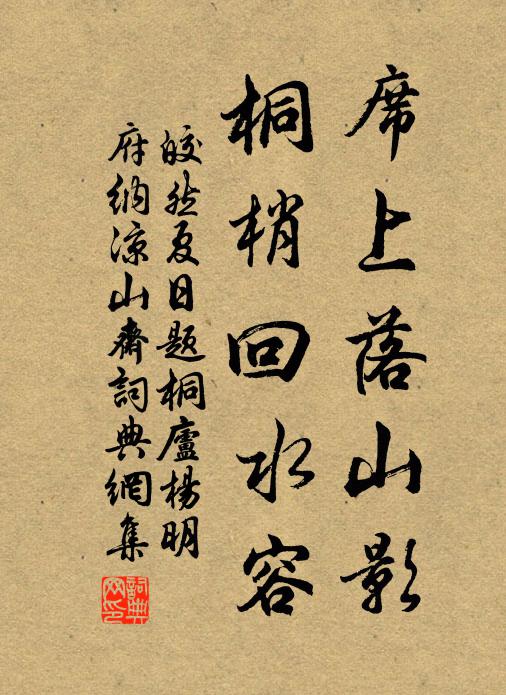 席上落山影
桐梢回水容
皎然夏日題桐廬楊明
府納凉山齋詞典網集
詞典
网印